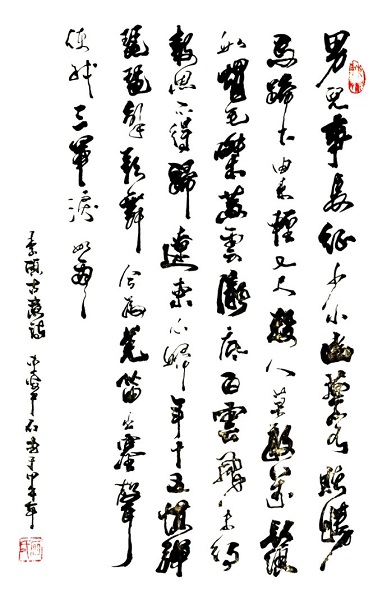 男兒事長征少小幽燕客賭勝
馬蹄下由來輕七尺殺人莫敢前鬚
如蝟毛磔黃雲隴底白雲飛未得
報恩不得歸遼東小婦年十五慣彈
琵琶解歌舞今為羌笛出塞聲
使我三軍淚如雨
李頎古意詩 甲午年